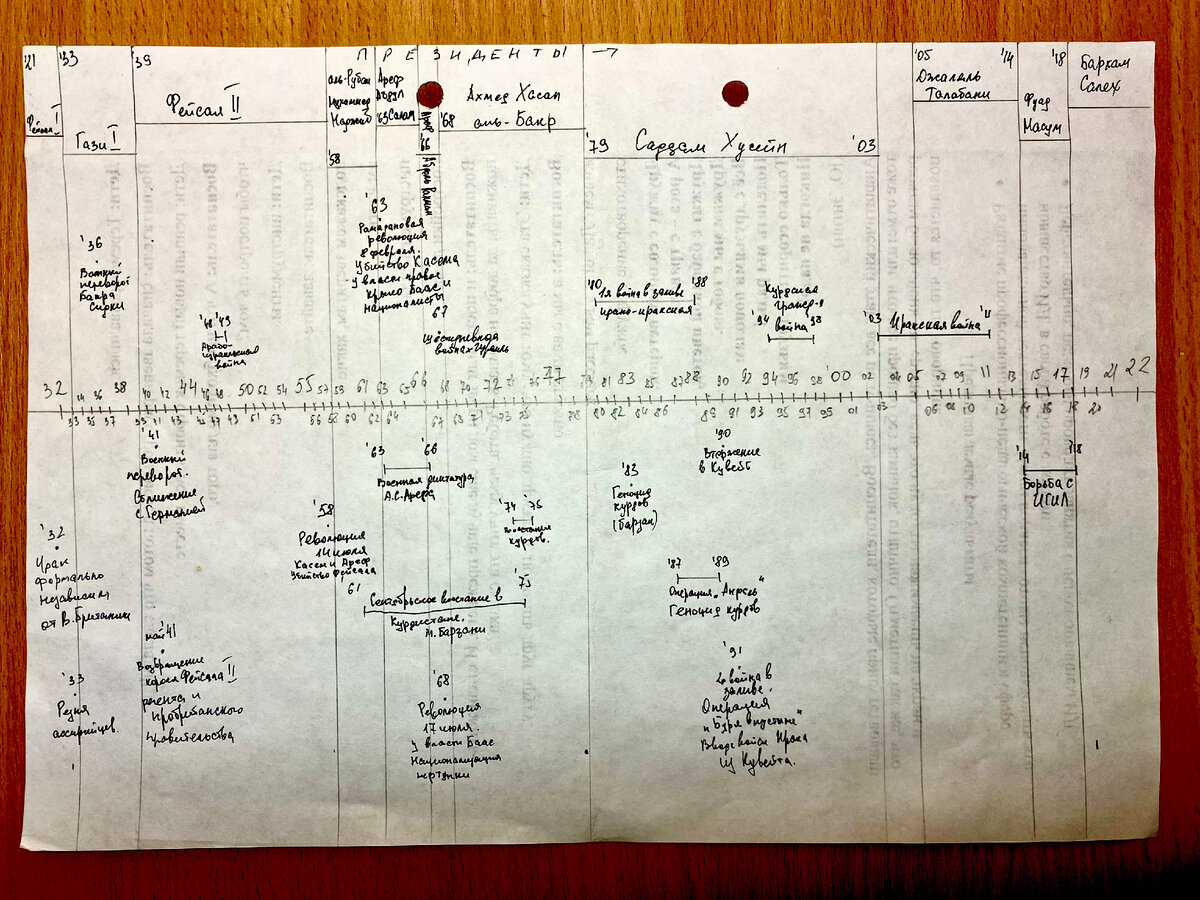 ПРЕЗИДЕНТЫ →
'21
Фейсал I
'33
Гази I
'39
Фейсал II
аль-Рубаи
Мухаммед
Наджиб
'58
Ареф
Абдул
'63 Салам
Ареф
'66
Абдель Рахман
Ахмед Хасан
'68 аль-Бакр
'79 Саддам Хусейн '03
'05 '14
Джалаль
Талабани
Фуад
Масум
'18
Бархам
Салех
'36
Военный
переворот
Бакра
Сидки
'48 '49
Арабо-
израильская
война
63
Рамадановая
революция
8 февраля.
Убийство Касема
у власти правое
крыло Баас и
националисты
67
Шестидневная
война с Израиль
'80 '88
1я война в заливе
ирано-иракская
Курдская
гражд-я
'94 война 98
'03 Иракская война '11
32 34 36 38 40 42 44 46 48 50 52 54 55 57 59 61 63 65 66 68 70 72 74 76 77 79 81 83 85 87 88 90 92 94 96 98 '00 02 04 05 07 09 11 13 15 17 19 21 22
33 35 37 39 41 43 45 47 49 51 53 56 58 60 62 64 67 69 71 73 75 78 80 82 84 86 89 91 93 95 97 99 01 03 06 08 10 12 14 16 18 20
'41
Военный
переворот.
Сближение
с Германией
'63 '66
Военная диктатура
А.С. Арефа
'74 '75
Восстание
курдов.
'83
Геноцид
курдов
(Барзан)
'90
Вторжение
в Кувейт
'14 '18
Борьба с
ИГИЛ
'32
Ирак
формально
независим
от В.Британии
'58
Революция
14 июля
Касем и Ареф
Убийство Фейсала
61 '75
Сентябрьское восстание в
Курдистане.
М. Барзани
'87 '89
Операция „Анфаль"
Геноцид курдов
май '41
Возвращение
короля Фейсала II
регента и
пробританского
правительства
'33
Резня
ассирийцев.
'68
Революция
17 июля.
У власти Баас
Национализация
нефтянки
'91
2я война в
заливе.
Операция
„Буря в пустыне"
Вывод войск Ирака
из Кувейта.